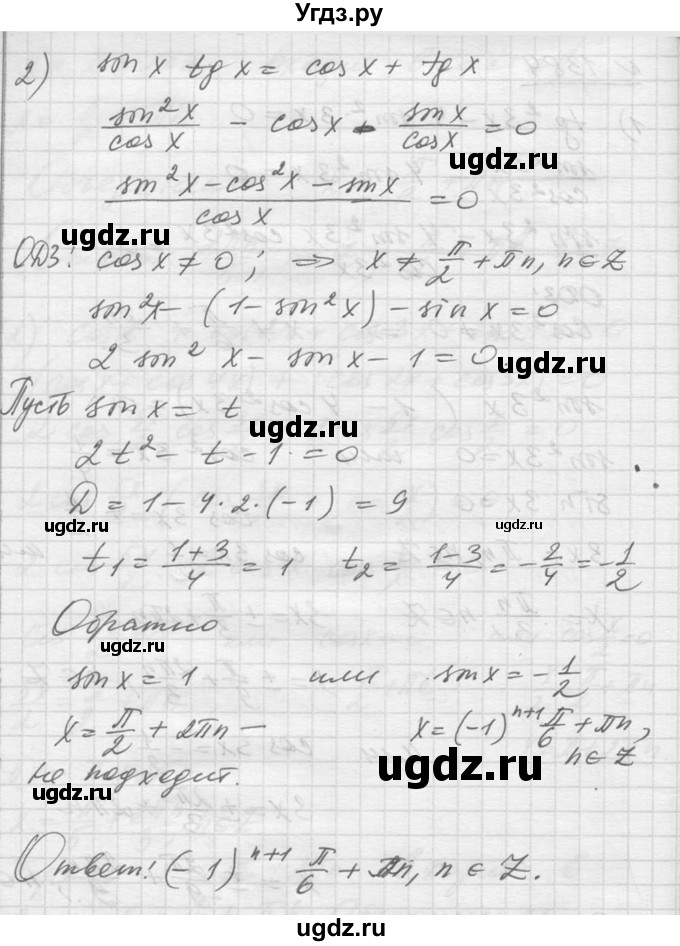 Угдз.ру
2) sin x tg x = cos x + tg x
sin²x/cos x - cos x - sin x/cos x = 0
ugdz.ru
(sin²x - cos²x - sin x)/cos x = 0
ugdz.ru
ugdz.ru
ОДЗ: cos x ≠ 0; ⇒ x ≠ π/2 + πn, n ∈ Z
sin²x - (1 - sin²x) - sin x = 0
2 sin² x - sin x - 1 = 0
ugdz.ru
Пусть sin x = t
ugdz.ru
2t² - t - 1 = 0
D = 1 - 4·2·(-1) = 9
ugdz.ru
t₁ = (1+3)/4 = 1 t₂ = (1-3)/4 = -2/4 = -1/2
Обратно
ugdz.ru
sin x = 1 или sin x = -1/2
x = π/2 + 2πn - x = (-1)ⁿ⁺¹ π/6 + πn,
n ∈ Z
не подходит.
ugdz.ru
ugdz.ru
Ответ: (-1)ⁿ⁺¹ π/6 + πn, n ∈ Z.
ugdz.ru
ugdz.ru